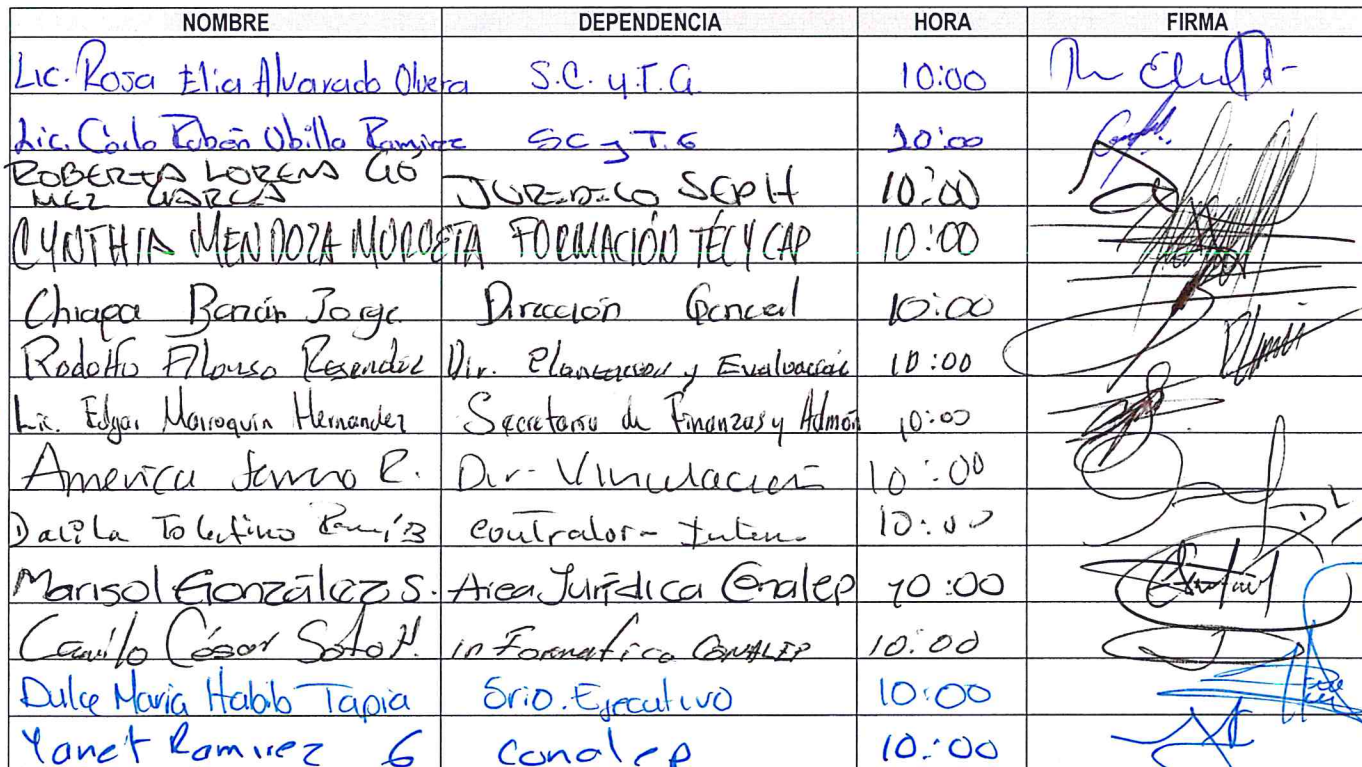 NOMBRE DEPENDENCIA HORA FIRMA
Lic. Rosa Elia Alvarado Olvera S.C. y.T.G. 10:00
Lic. Carlo Rubén Ubilla Ramirez SC y T.G 10:00
ROBERTA LORENA GÓ
MEZ GARCÍA JURIDICO SEPH 10:00
CYNTHIA MENDOZA FORMACIÓN TEC Y CAP 10:00
Chiapa Jorge Dirección General 10:00
Rodolfo Alonso Resendiz Dir. Planeacion y Evaluación 10:00
Lic. Edgar Marroquín Hernandez Secretaria de Finanzas y Admón 10:00
America R. Dir. Vinculación 10:00
Tolentino 10:00
Marisol González S. Area Jurídica Conalep 10:00
Camilo César Soto H. informatica CONALEP 10:00
Dulce María Habib Tapia Srio. Ejecutivo 10:00
Yanet Ramirez G conalep 10:00